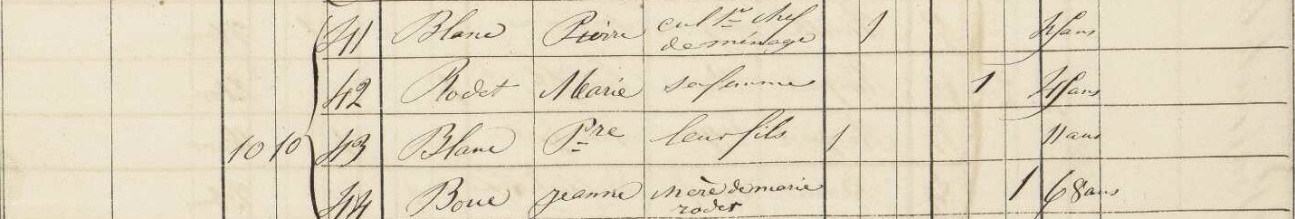 41 Blanc Pierre cult.r chef 1 45 ans
de ménage
42 Rodet Marie sa femme 1 45 ans
10 10 43 Blanc Pre leur fils 1 11 ans
44 Boue Jeanne mère de marie 1 68 ans
rodet